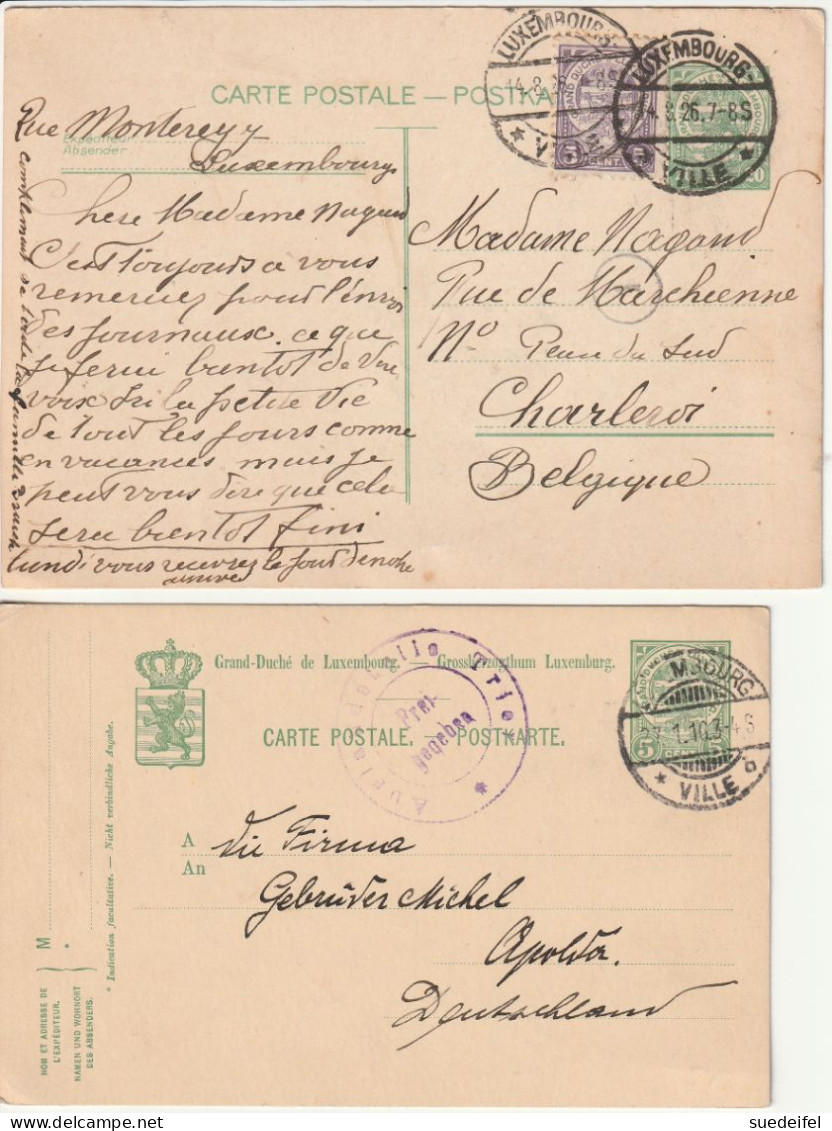 CARTE POSTALE — POSTKA
LUXEMBOURG-
VILLE
LUXEMBOURG-
8.26.7-8S
VILLE
5 CENT. 5
Expéditeur
Absender
Rue Monterey
Luxembourg
Chere Madame Nagand
C'est toujours a vous
remercier pour l'envoi
des journaux. ce que
je ferai bientot de vive
voix ici la petite vie
de tout les jours comme
en vacances mais je
peut vous dire que cela
sera bientot fini
lundi vous recevrez le jour de notre
complement de
famille
Madame Nagand
Rue de Marchienne
No du Sud
Charleroi
Belgique
Grand-Duché de Luxembourg. — Grossherzogthum Luxemburg.
CARTE POSTALE. — POSTKARTE.
Trier
Frei-
gegeben
5 CENT
MBOURG-
1.10.3-4S
VILLE
A
An
die Firma
Gebrüder Michel
Apolda.
Deutschland
* Indication facultative. — Nicht verbindliche Angabe.
M *
NOM ET ADRESSE DE
L'EXPÉDITEUR.
NAMEN UND WOHNORT
DES ABSENDERS.
DELCAMPE.NET
suedeifel